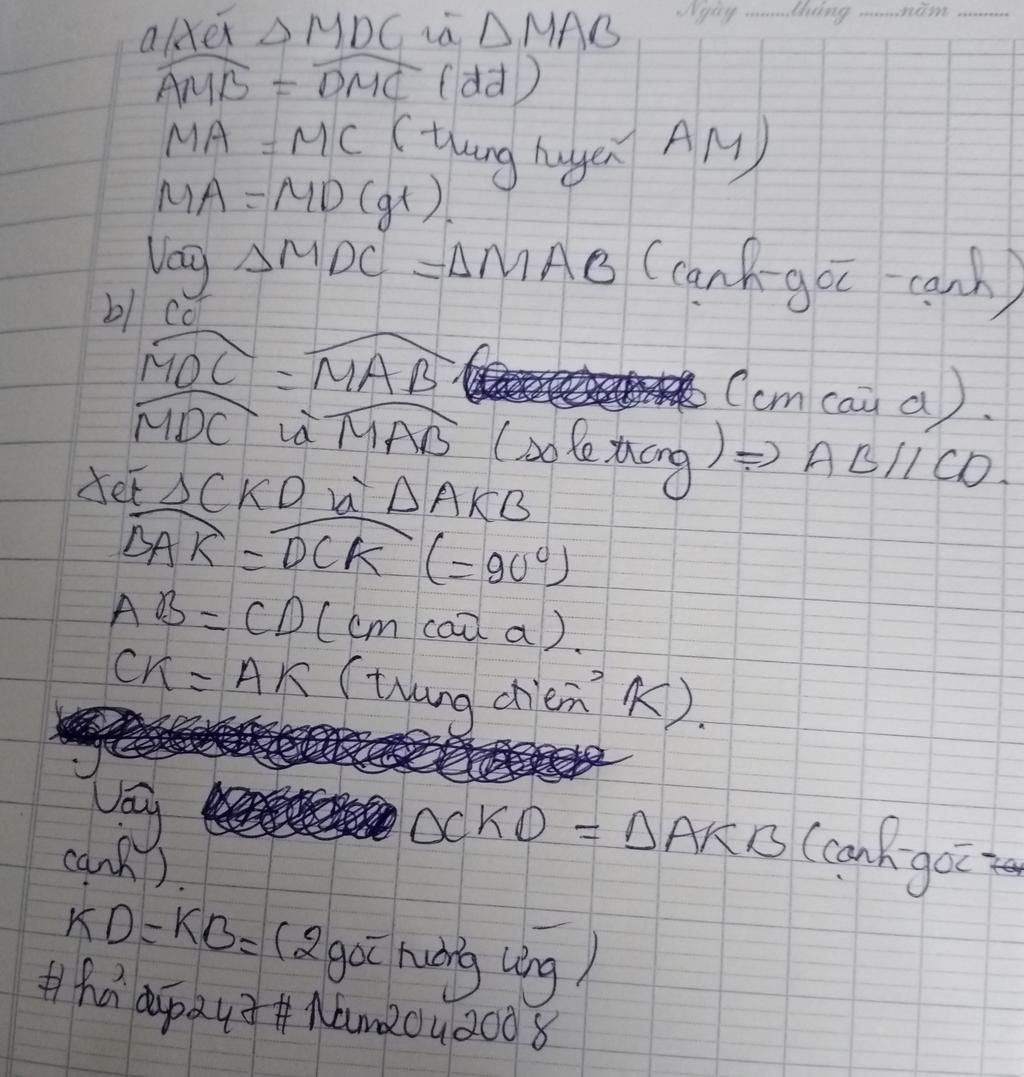 Ngày ......... tháng ......... năm .........
a/ Xét ΔMDC và ΔMAB
AMB = DMC (đđ)
MA = MC (trung tuyến AM)
MA = MD (gt).
Vậy ΔMDC = ΔMAB (cạnh-góc-cạnh)
b/ Có
MDC = MAB (cm câu a).
MDC và MAB (so le trong) => AB // CD.
Xét ΔCKD và ΔAKB
BAK = DCK (=90°)
AB = CD (cm câu a).
CK = AK (trung điểm K).
Vậy ΔCKD = ΔAKB (cạnh-góc-
cạnh).
KD = KB = (2 góc tương ứng)
#hỏi đáp247#Nam2042008